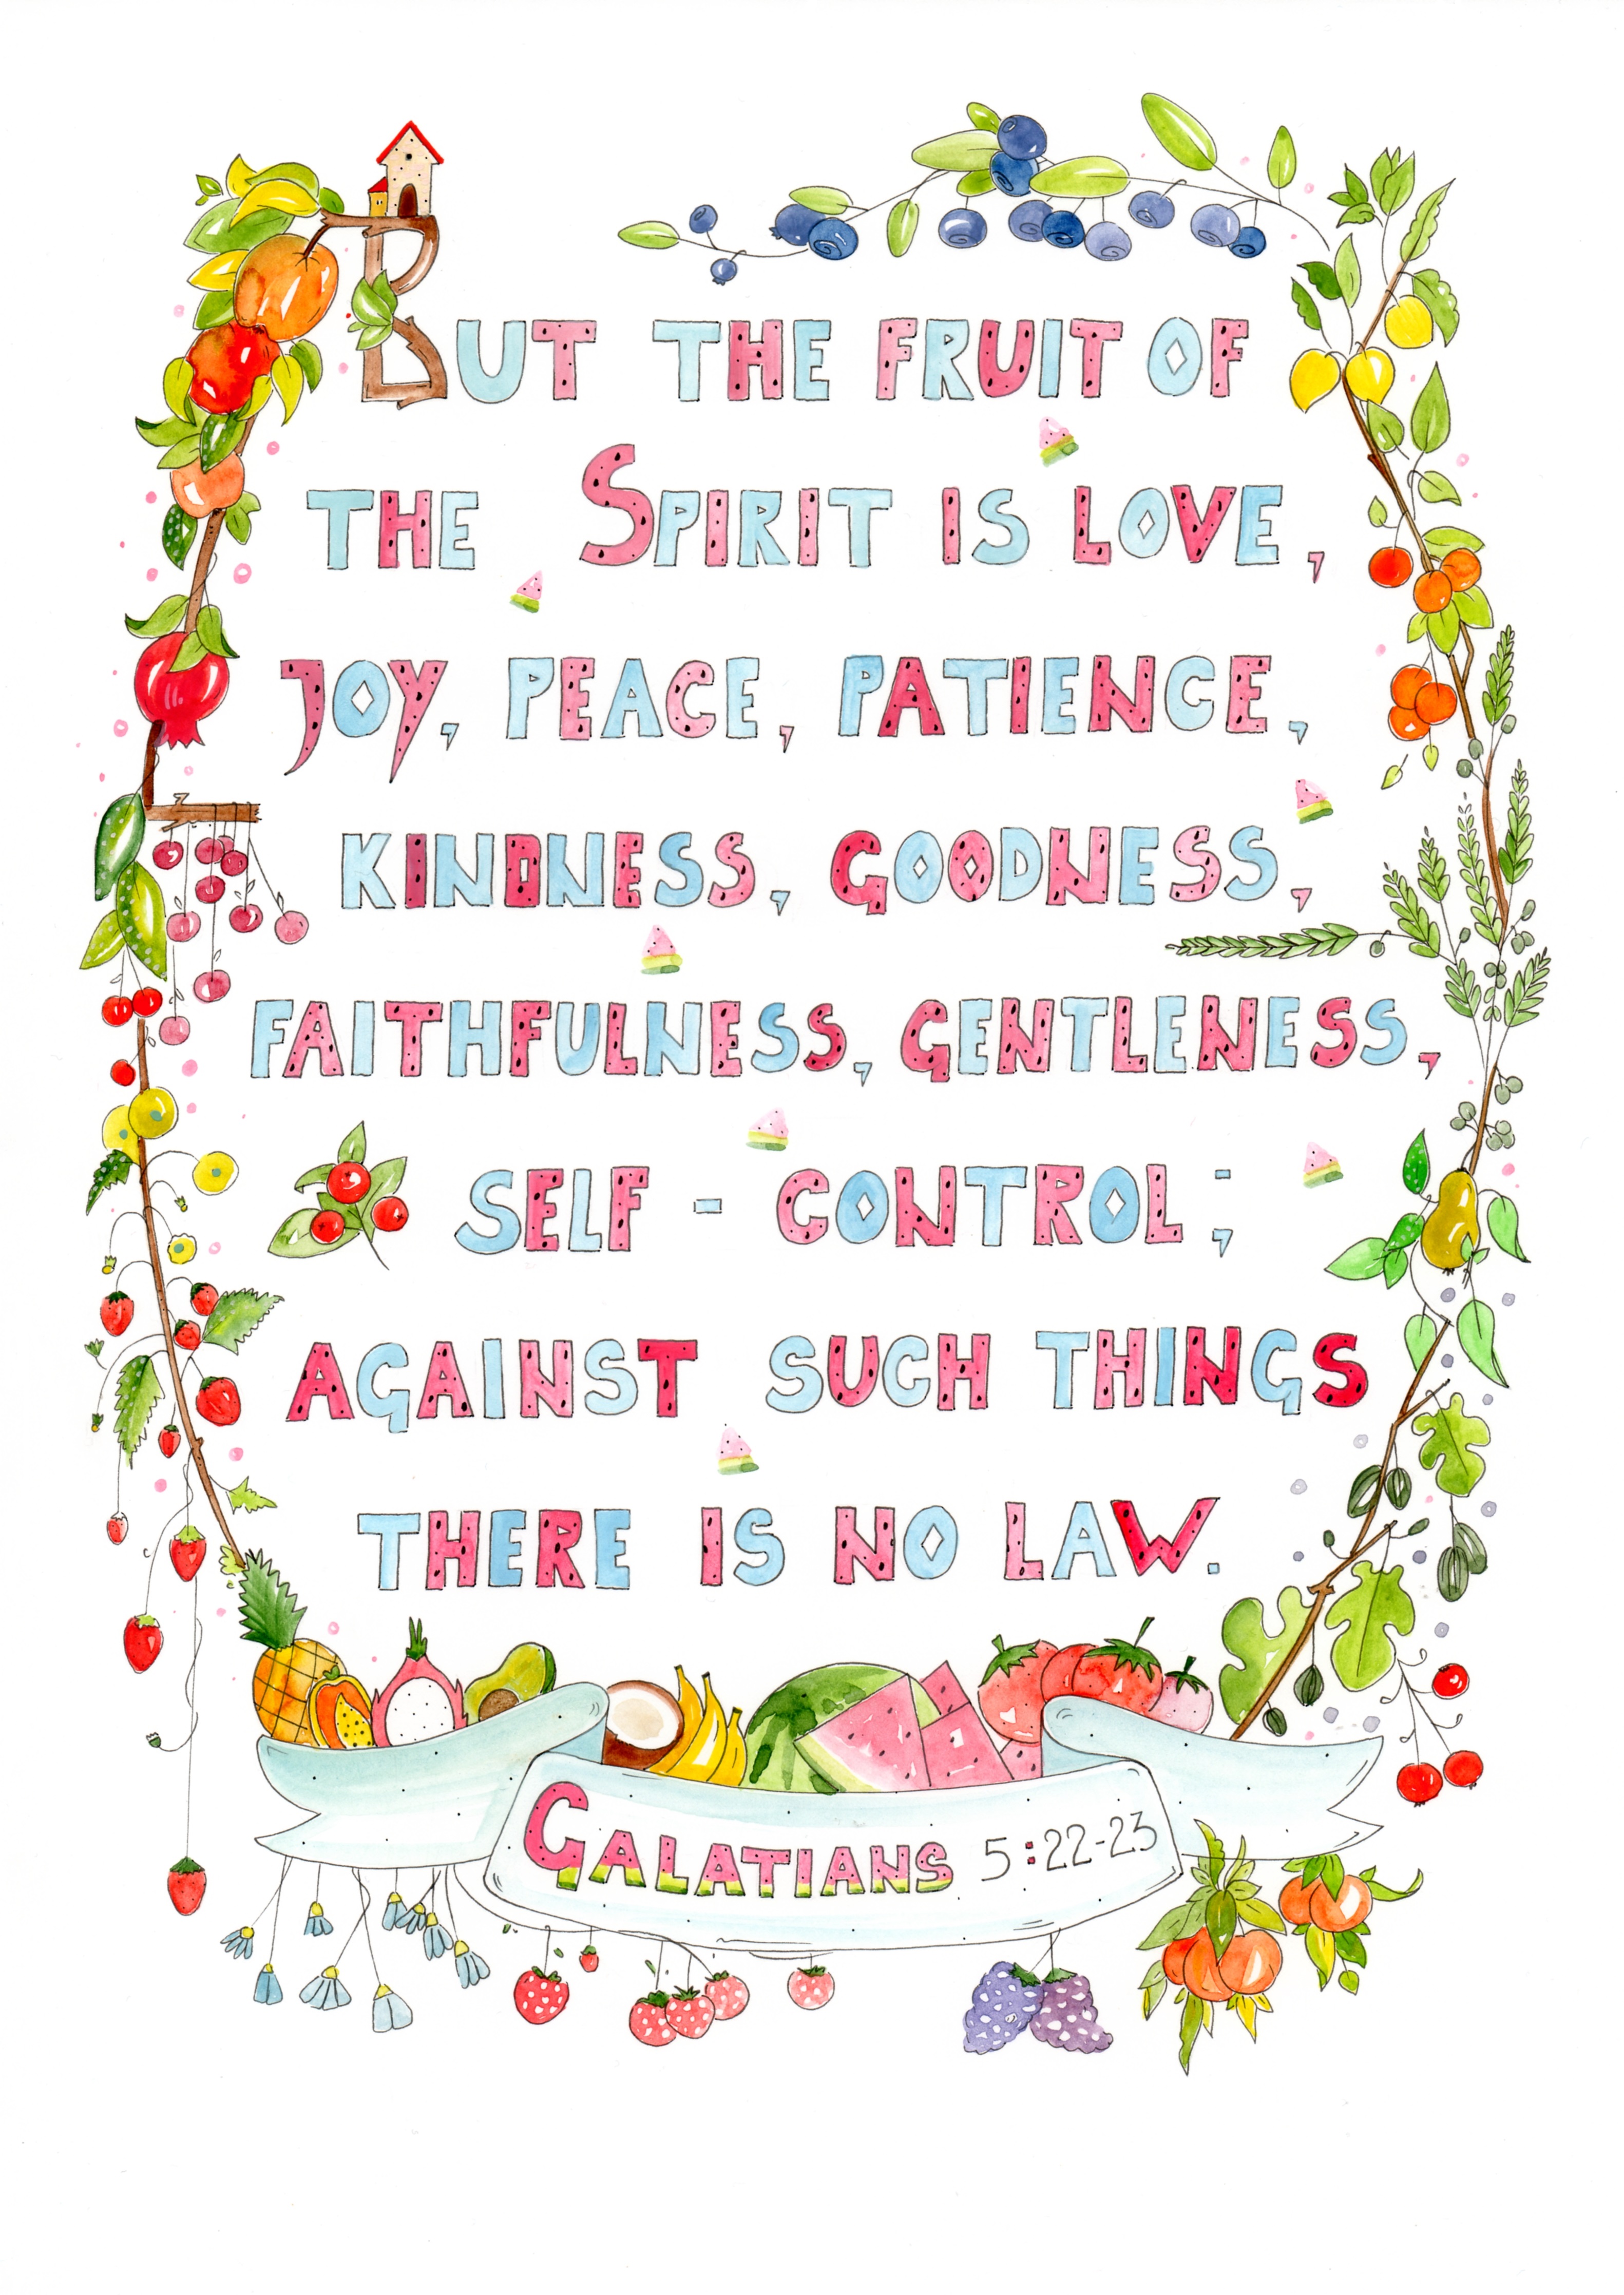 BUT THE FRUIT OF
THE SPIRIT IS LOVE,
JOY, PEACE, PATIENCE,
KINDNESS, GOODNESS,
FAITHFULNESS, GENTLENESS,
SELF - CONTROL;
AGAINST SUCH THINGS
THERE IS NO LAW.
GALATIANS 5:22-23